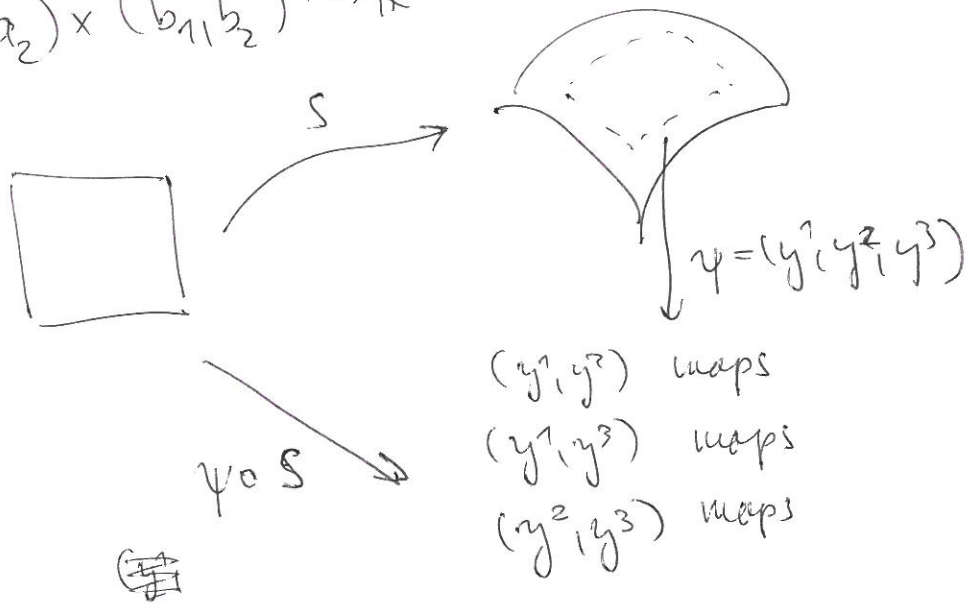 2) × (b1, b2)
S
ψ = (y¹, y², y³)
(y¹, y²) maps
(y¹, y³) maps
ψ ∘ S
(y², y³) maps